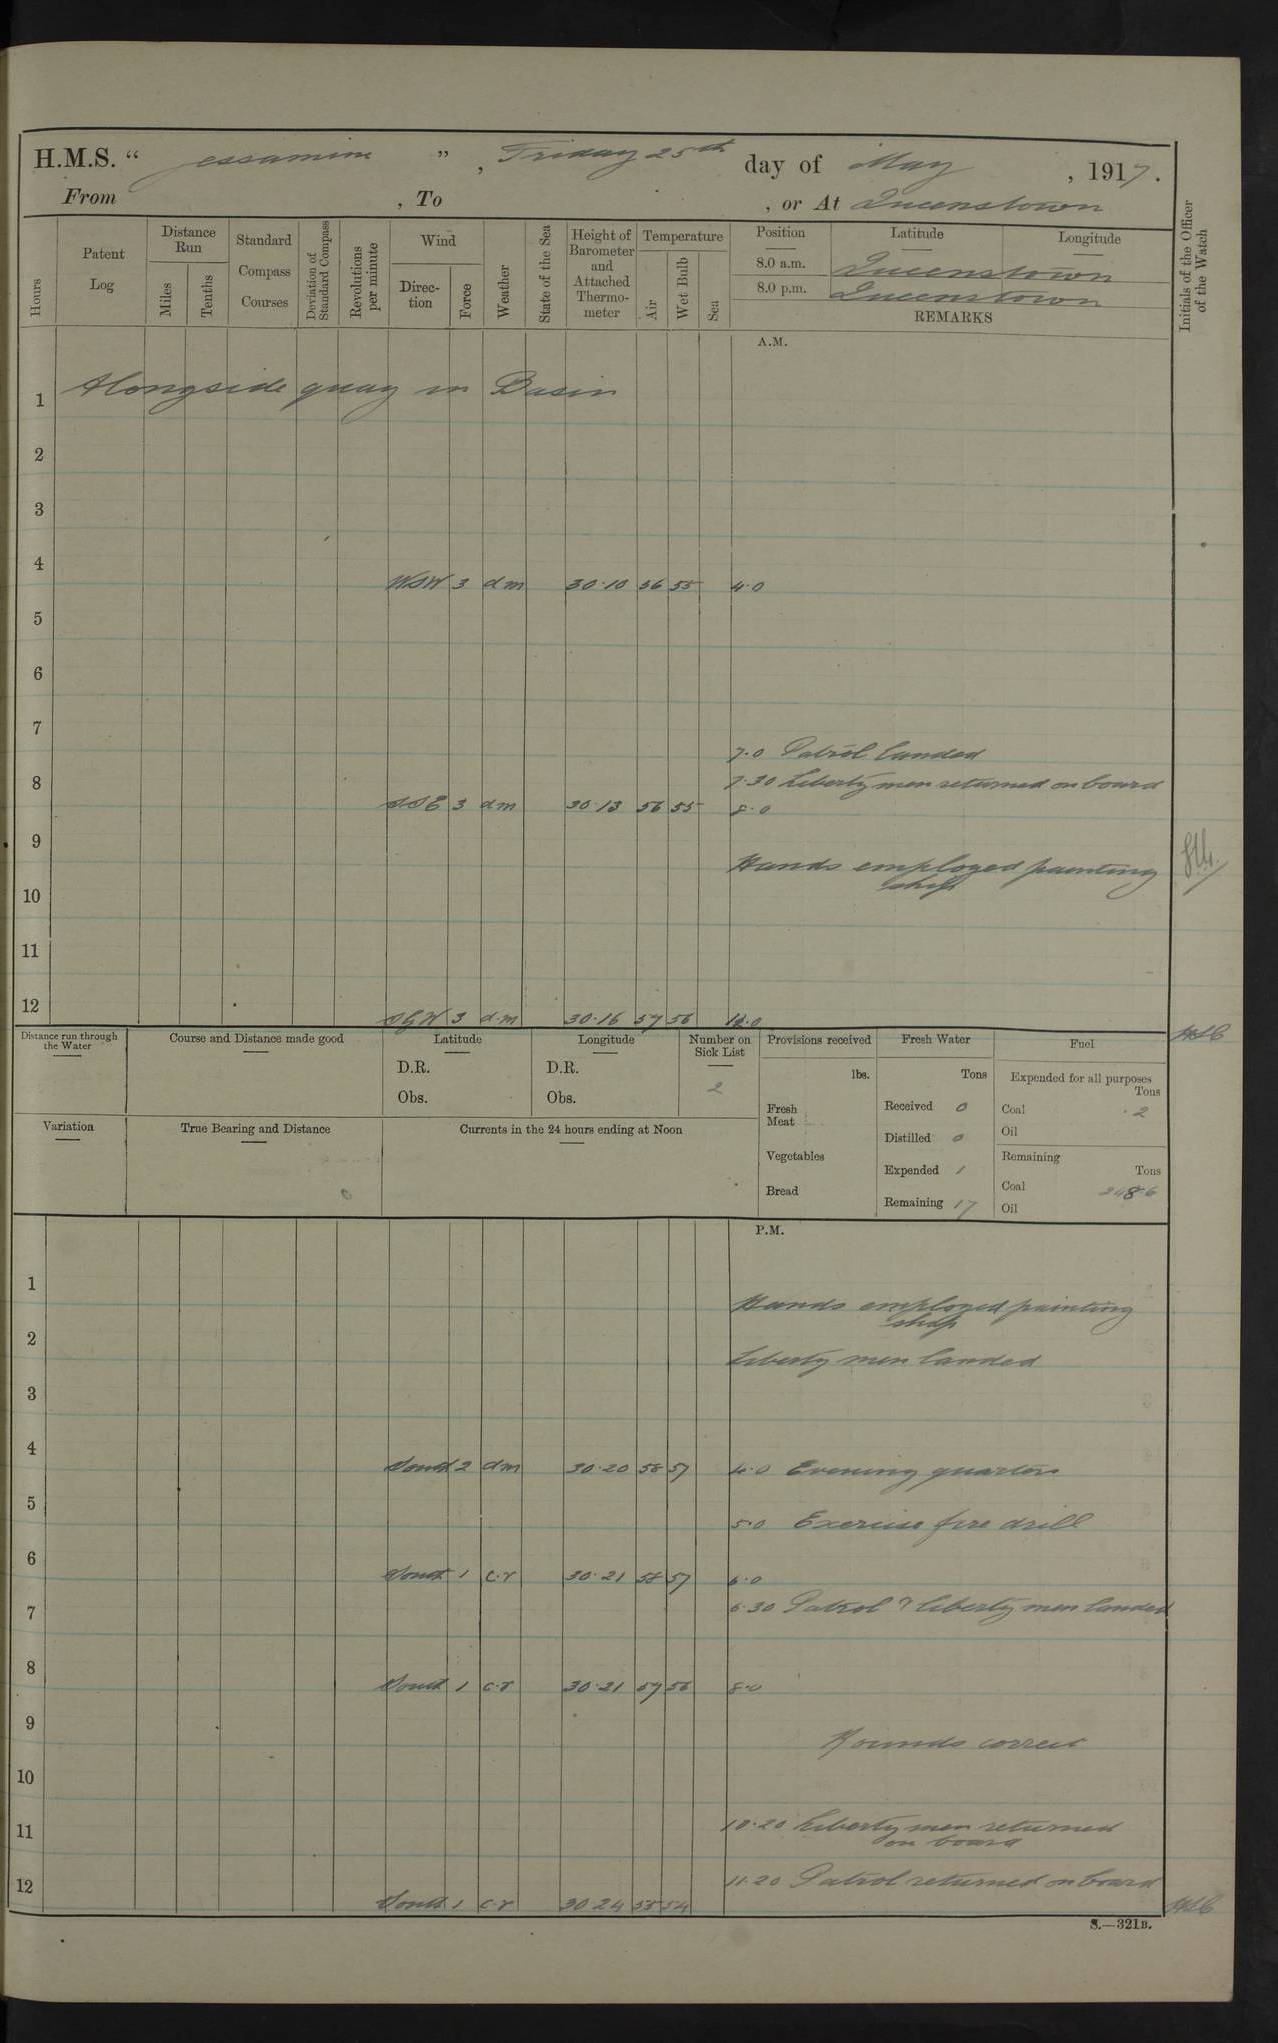 H.M.S. " Jessamine ", Friday 25th day of May, 1917.
From , To , or At Queenstown
Hours
Patent Log
Distance Run
Miles
Tenths
Standard Compass Courses
Deviation of Standard Compass
Revolutions per minute
Wind
Direction
Force
Weather
State of the Sea
Height of Barometer and Attached Thermometer
Temperature
Air
Wet Bulb
Sea
Position Latitude Longitude
8.0 a.m. Queenstown
8.0 p.m. Queenstown
REMARKS
Initials of the Officer of the Watch
A.M.
1 Alongside quay in Basin
2
3
4
WSW 3 dm 30.10 56 55 4.0
5
6
7
7.0 Patrol landed
8 7.30 Liberty men returned on board
SSE 3 dm 30.13 56 55 8.0
9
Hands employed painting
ship
10
11
12
3 dm 30.16 57 56 12.0
Distance run through the Water
Course and Distance made good
Latitude
D.R.
Obs.
Longitude
D.R.
Obs.
Number on Sick List
2
Provisions received
lbs.
Fresh Meat
Vegetables
Bread
Fresh Water
Tons
Received 0
Distilled 0
Expended 1
Remaining 17
Fuel
Expended for all purposes
Tons
Coal 2
Oil
Remaining
Tons
Coal
Oil
Variation
True Bearing and Distance
Currents in the 24 hours ending at Noon
P.M.
1
Hands employed painting
ship
2
Liberty men landed
3
4
South 2 dm 30.20 58 57 4.0 Evening quarters
5
5.0 Exercise fire drill
6
South 1 c.r 30.21 58 57 6.0
7 6.30 Patrol & liberty men landed
8
South 1 c.r 30.21 57 56 8.0
9
Rounds correct
10
11 10.20 Liberty men returned
on board
12 11.20 Patrol returned on board
South 1 c.r 30.24 55 54
S.—321B.